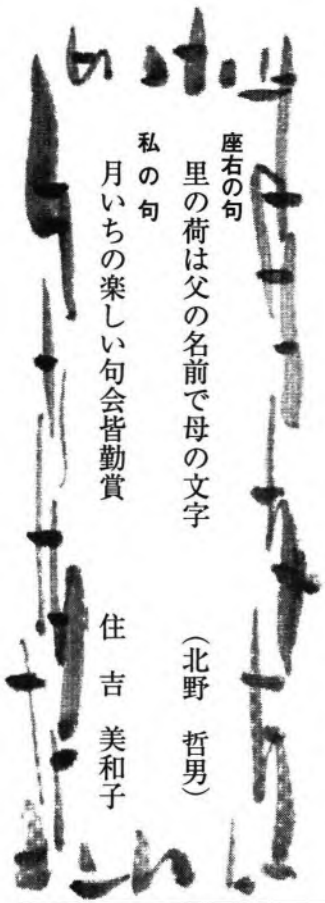 座右の句
里の荷は父の名前で母の文字 (北野 哲男)
私の句
月いちの楽しい句会皆勤賞 住吉 美和子